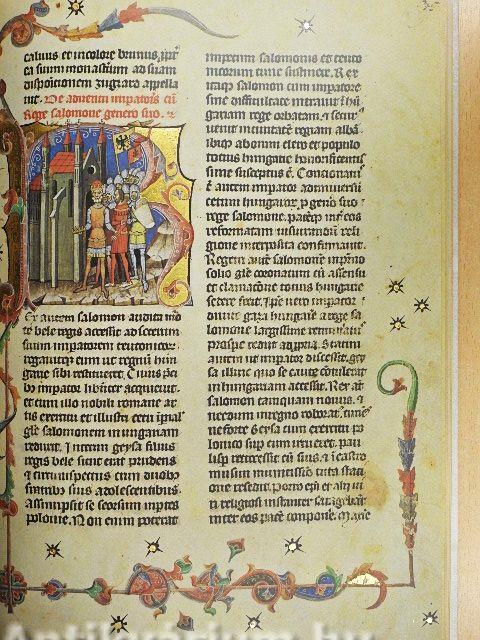 caluus et incolore brunus, ppt
ca suum monasterium ad suam
dispositionem zugrato appella
uit. De aduentu imperatoris cu
Rege salomone genero suo.
Ex autem salomon audita mor
te bele regis accessit ad socerum
suum imperatorem teutonicor
rogauitque eum ut regnum hun
garie sibi restitueret. Cuius peti
imperator libenter acquieuit
et cum illo nobili romane
exercitu et illustri
salomonem in ungariam
reduxit. Interim geysa filius
regis bele sicut erat prudens
et circumspectus cum duobus
fratribus suis adolescentibus
assumpsit se seorsum in partes
polonie. Non enim poterat
impetum salomonis et teuto
nicorum tunc sustinere. Rex
itaque salomon cum imperatore
sine difficultate intrauit hun
gariam rege orbatam. et
uenit in ciuitatem regiam alba
ibique ab omni clero et populo
totius hungarie honorificentis
sime susceptus est.
autem imperator
cetum hungarorum per generum suo
rege salomone. pacem inter eos
reformatam iusiurandi reli
gione interposita confirmauit.
Regem autem salomonem in paterno
solio gloriose coronatum cum assensu
et clamatione totius hungarie
sedere fecit. Ipse uero imperator
diuite gaza hungarie a rege sa
lomone largissime remuneratus
prospere rediit ad propria. Statim
autem ut imperator discessit. gey
sa illinc quo se caute contulerat
in hungariam accessit. Rex autem
salomon tanquam nouus. et
necdum in regno roboratus timens
ne forte Geysa cum exercitu po
lonico super eum irrueret. pau
lisper retrocessit cum suis. et in castro
musuni munitissimo tuta stati
one resedit. Porro episcopi et alii ui
ri religiosi instanter satagebant
inter eos pacem componere. Maxime
Antikvarium.hu